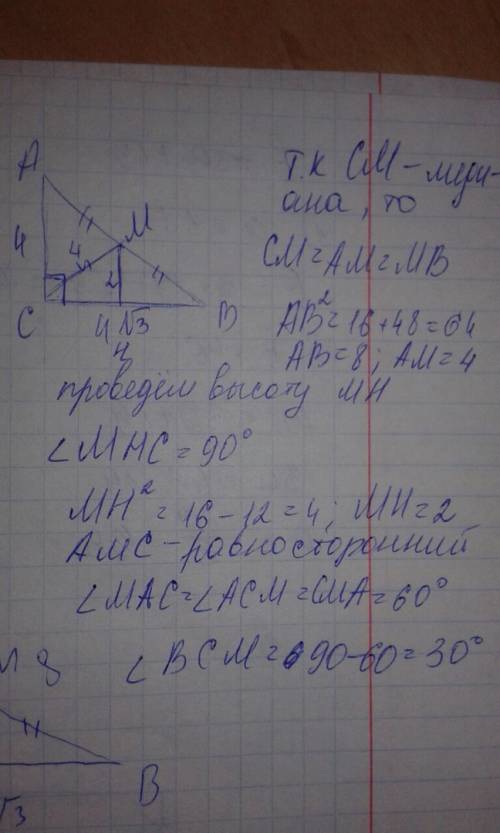 A
т.к СМ - меди-
ана, то
M
4
4
2
C
4√3
B
H
CM=AM=MB
AB²=16+48=64
AB=8; AM=4
проведём высоту MH
∠MHC=90°
MH²=16-12=4; MH=2
AMC-равносторонний
∠MAC=∠ACM=CMA=60°
∠BCM=90-60=30°
B
√3